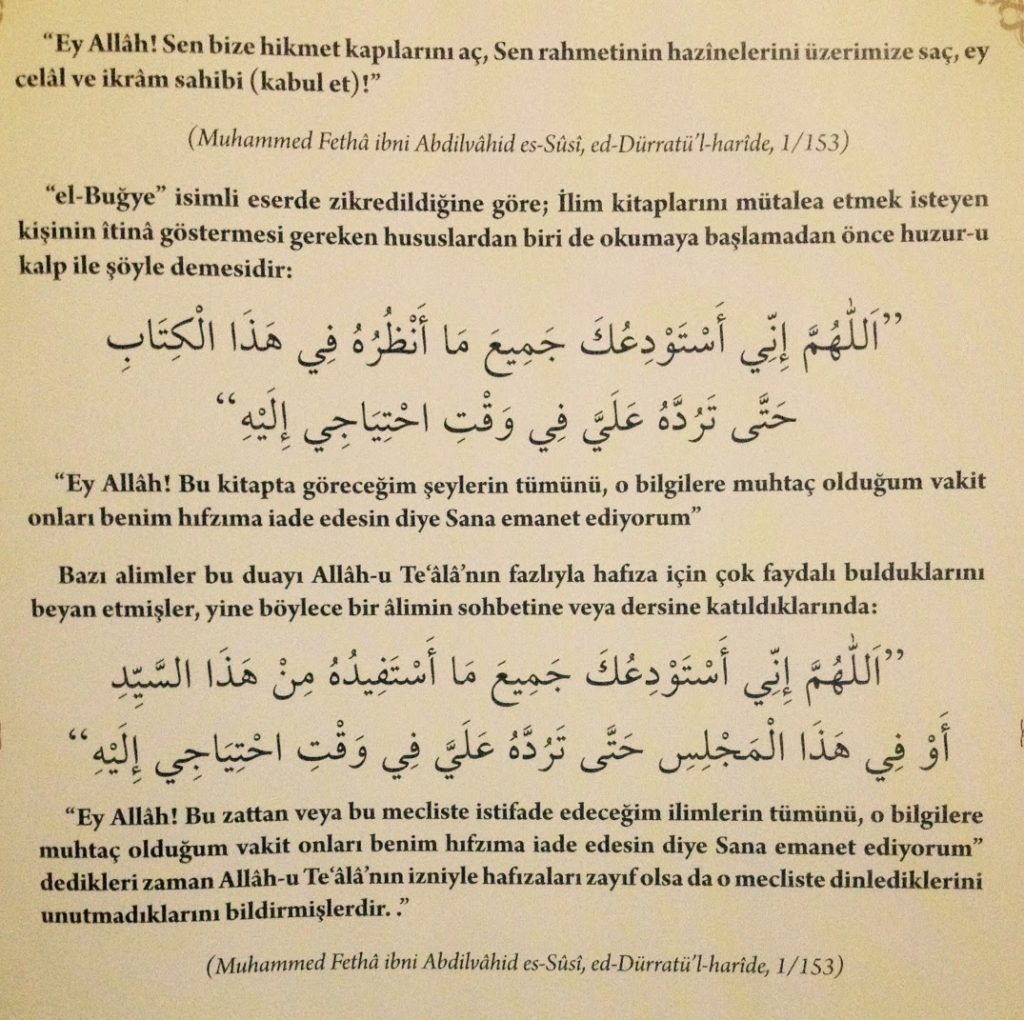 “Ey Allâh! Sen bize hikmet kapılarını aç, Sen rahmetinin hazînelerini üzerimize saç, ey
celâl ve ikrâm sahibi (kabul et)!”
(Muhammed Fethâ ibni Abdilvâhid es-Sûsî, ed-Dürratü’l-harîde, 1/153)
“el-Buğye” isimli eserde zikredildiğine göre; İlim kitaplarını mütalea etmek isteyen
kişinin îtinâ göstermesi gereken hususlardan biri de okumaya başlamadan önce huzur-u
kalp ile şöyle demesidir:
”اَللّٰهُمَّ إِنِّي أَسْتَوْدِعُكَ جَمِيعَ مَا أَنْظُرُهُ فِي هَذَا الْكِتَابِ
حَتَّى تَرُدَّهُ عَلَيَّ فِي وَقْتِ احْتِيَاجِي إِلَيْهِ“
“Ey Allâh! Bu kitapta göreceğim şeylerin tümünü, o bilgilere muhtaç olduğum vakit
onları benim hıfzıma iade edesin diye Sana emanet ediyorum”
Bazı alimler bu duayı Allâh-u Te‘âlâ’nın fazlıyla hafıza için çok faydalı bulduklarını
beyan etmişler, yine böylece bir âlimin sohbetine veya dersine katıldıklarında:
”اَللّٰهُمَّ إِنِّي أَسْتَوْدِعُكَ جَمِيعَ مَا أَسْتَفِيدُهُ مِنْ هَذَا السَّيِّدِ
أَوْ فِي هَذَا الْمَجْلِسِ حَتَّى تَرُدَّهُ عَلَيَّ فِي وَقْتِ احْتِيَاجِي إِلَيْهِ“
“Ey Allâh! Bu zattan veya bu mecliste istifade edeceğim ilimlerin tümünü, o bilgilere
muhtaç olduğum vakit onları benim hıfzıma iade edesin diye Sana emanet ediyorum”
dedikleri zaman Allâh-u Te‘âlâ’nın izniyle hafızaları zayıf olsa da o mecliste dinlediklerini
unutmadıklarını bildirmişlerdir. .”
(Muhammed Fethâ ibni Abdilvâhid es-Sûsî, ed-Dürratü’l-harîde, 1/153)